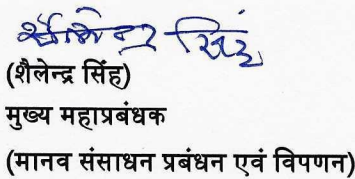 शैलेन्द्र सिंह
(शैलेन्द्र सिंह)
मुख्य महाप्रबंधक
(मानव संसाधन प्रबंधन एवं विपणन)